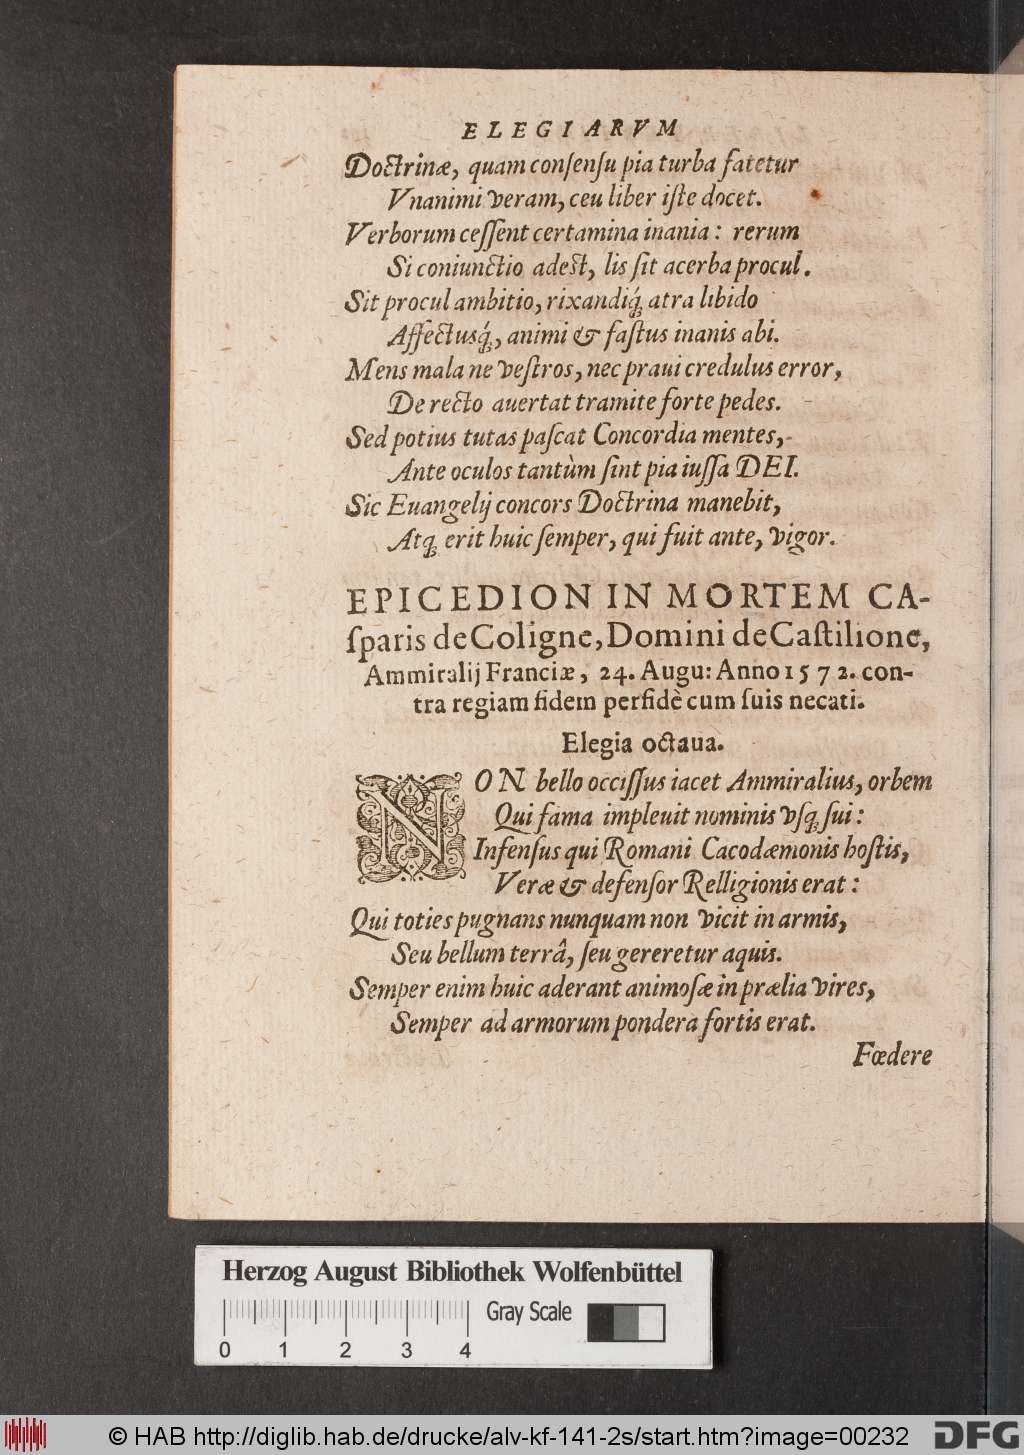 ELEGIARVM
Doctrinæ, quam conſenſu pia turba fatetur
Vnanimi veram, ceu liber iſte docet.
Verborum ceſſent certamina inania: rerum
Si coniunctio adest, lis ſit acerba procul.
Sit procul ambitio, rixandiq́; atra libido
Affectusq́;, animi & faſtus inanis abi.
Mens mala ne veſtros, nec praui credulus error,
De recto auertat tramite forte pedes.
Sed potius tutas paſcat Concordia mentes,
Ante oculos tantùm ſint pia iuſſa DEI.
Sic Euangelij concors Doctrina manebit,
Atq; erit huic ſemper, qui fuit ante, vigor.
EPICEDION IN MORTEM CA-
ſparis de Coligne, Domini de Caſtilione,
Ammiralij Franciæ, 24. Augu: Anno 1572. con-
tra regiam fidem perfidè cum ſuis necati.
Elegia octaua.
NON bello occiſſus iacet Ammiralius, orbem
Qui fama impleuit nominis vſq; ſui:
Infenſus qui Romani Cacodæmonis hoſtis,
Veræ & defenſor Relligionis erat:
Qui toties pugnans nunquam non vicit in armis,
Seu bellum terrâ, ſeu gereretur aquis.
Semper enim huic aderant animoſæ in prælia vires,
Semper ad armorum pondera fortis erat.
Fœdere
Herzog August Bibliothek Wolfenbüttel
Gray Scale
0 1 2 3 4
© HAB http://diglib.hab.de/drucke/alv-kf-141-2s/start.htm?image=00232
DFG